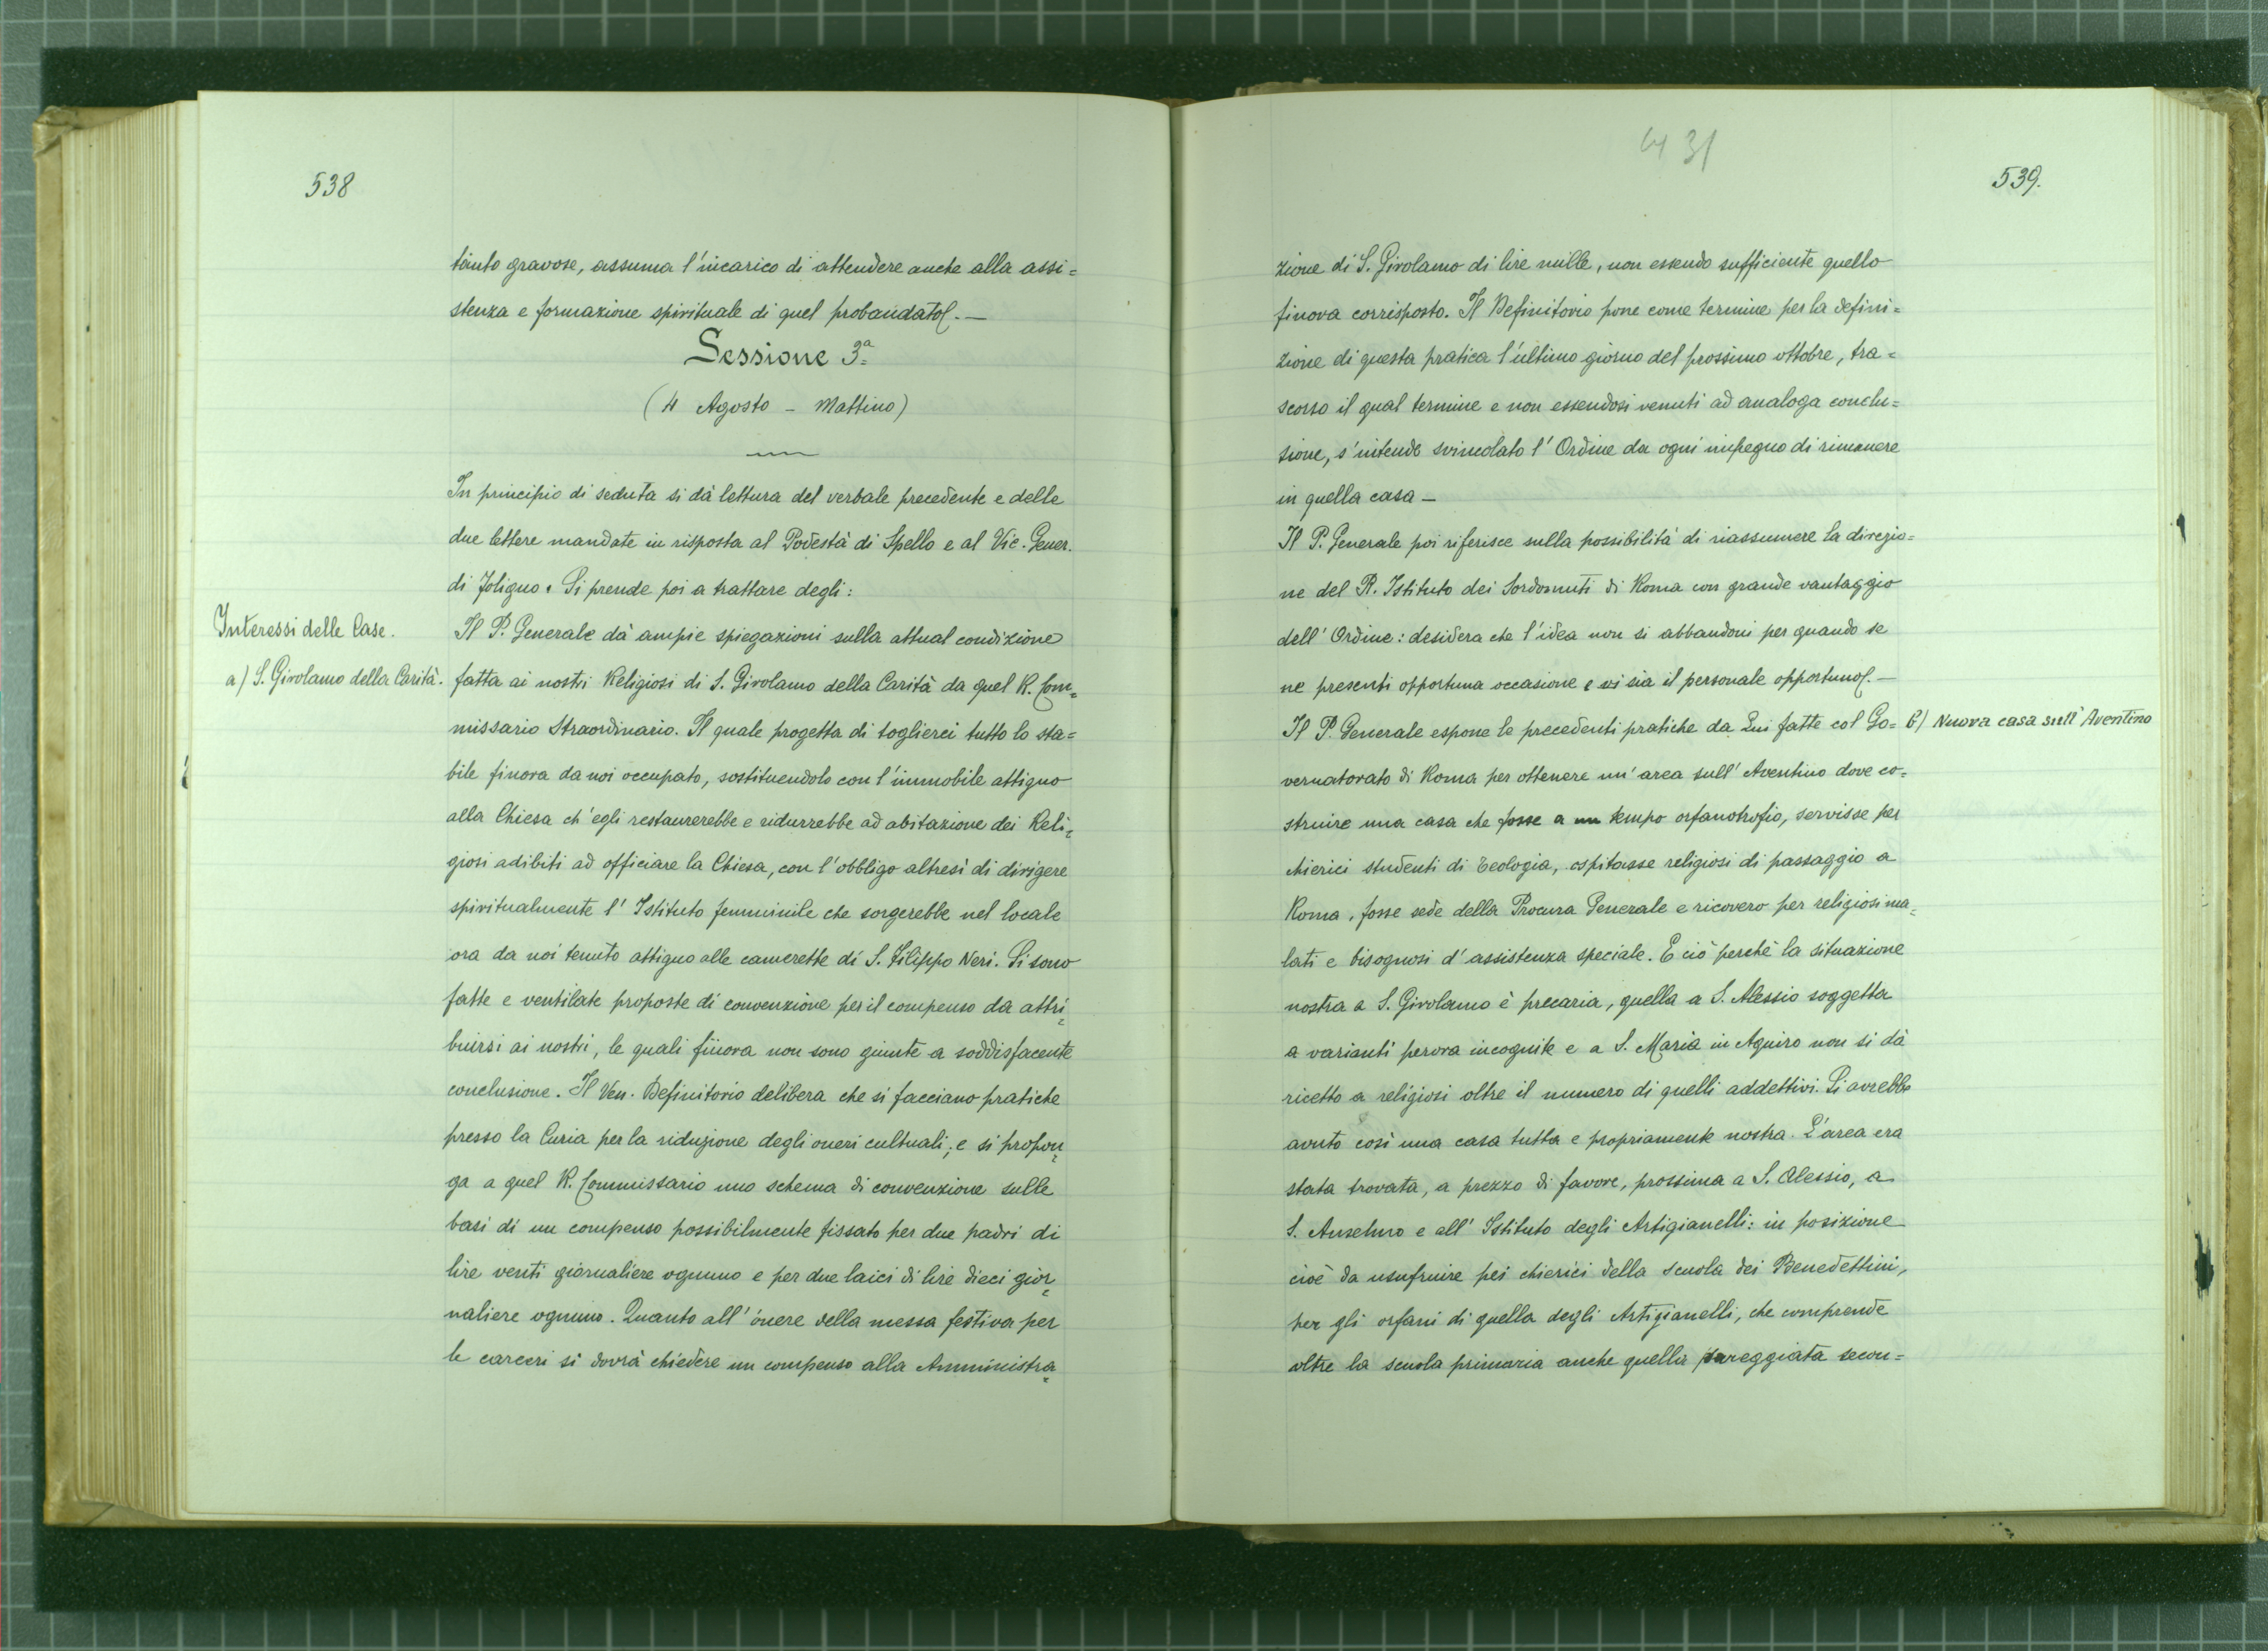 538
tanto gravose, assuma l'incarico di attendere anche alla assi=
stenza e formazione spirituale di quel probandato.—
Sessione 3ª
(4 Agosto - Mattino)
In principio di seduta si dà lettura del verbale precedente e delle
due lettere mandate in risposta al Podestà di Spello e al Vic. Gener.
di Foligno. Si prende poi a trattare degli:
Interessi delle Case.
a) S. Girolamo della Carità.
Il P. Generale dà ampie spiegazioni sulla attual condizione
fatta ai nostri Religiosi di S. Girolamo della Carità da quel R. Com=
missario Straordinario. Il quale progetta di toglierci tutto lo sta=
bile finora da noi occupato, sostituendolo con l'immobile attiguo
alla Chiesa ch'egli restaurerebbe e ridurrebbe ad abitazione dei Reli=
giosi adibiti ad officiare la Chiesa, con l'obbligo altresì di dirigere
spiritualmente l'Istituto femminile che sorgerebbe nel locale
ora da noi tenuto attiguo alle camerette di S. Filippo Neri. Si sono
fatte e ventilate proposte di convenzione per il compenso da attri=
buirsi ai nostri, le quali finora non sono giunte a soddisfacente
conclusione. Il Ven. Definitorio delibera che si facciano pratiche
presso la Curia per la riduzione degli oneri cultuali; e si propon=
ga a quel R. Commissario uno schema di convenzione sulle
basi di un compenso possibilmente fissato per due padri di
lire venti giornaliere ognuno e per due laici di lire dieci gior=
naliere ognuno. Quanto all'onere della messa festiva per
le carceri si dovrà chiedere un compenso alla Amministra=
431
539.
zione di S. Girolamo di lire mille, non essendo sufficiente quello
finora corrisposto. Il Definitorio pone come termine per la defini=
zione di questa pratica l'ultimo giorno del prossimo ottobre, tra=
scorso il qual termine e non essendosi venuti ad analoga conclu=
sione, s'intende svincolato l'Ordine da ogni impegno di rimanere
in quella casa —
Il P. Generale poi riferisce sulla possibilità di riassumere la direzio=
ne del R. Istituto dei Sordomuti di Roma con grande vantaggio
dell'Ordine: desidera che l'idea non si abbandoni per quando se
ne presenti opportuna occasione e vi sia il personale opportuno.—
Il P. Generale espone le precedenti pratiche da Lui fatte col Go=
b) Nuova casa sull'Aventino
vernatorato di Roma per ottenere un'area sull'Aventino dove co=
struire una casa che fosse a un tempo orfanotrofio, servisse per
chierici studenti di Teologia, ospitasse religiosi di passaggio a
Roma, fosse sede della Procura Generale e ricovero per religiosi ma=
lati e bisognosi d'assistenza speciale. E ciò perchè la situazione
nostra a S. Girolamo è precaria, quella a S. Alessio soggetta
a varianti perora incognite e a S. Maria in Aquiro non si dà
ricetto a religiosi oltre il numero di quelli addettivi. Si avrebbe
avuto così una casa tutta e propriamente nostra. L'area era
stata trovata, a prezzo di favore, prossima a S. Alessio, a
S. Anselmo e all'Istituto degli Artigianelli: in posizione
cioè da usufruire pei chierici della scuola dei Benedettini,
per gli orfani di quella degli Artigianelli, che comprende
oltre la scuola primaria anche quella pareggiata secon=